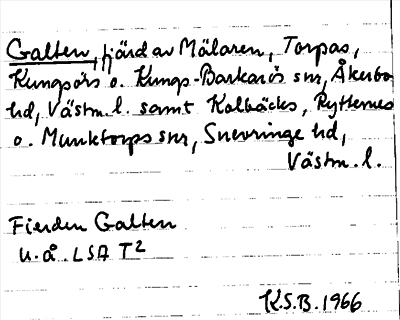 Galten, fjärd av Mälaren, Torpas,
Kungsörs o. Kungs-Barkarös snr, Åkerbo
hd, Västm. l. samt Kolbäcks, Rytternes
o. Munktorps snr, Snevringe hd,
Västm. l.
Fierden Galten
u. å. LSA T2
K.S.B. 1966